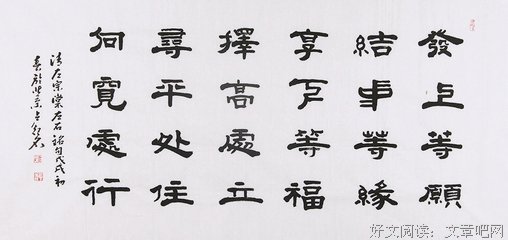 發上等願
結中等緣
享下等福
擇高處立
尋平处住
向寬處行
清左宗棠左右銘句戊戌初
春於
好文阅读：文章吧网